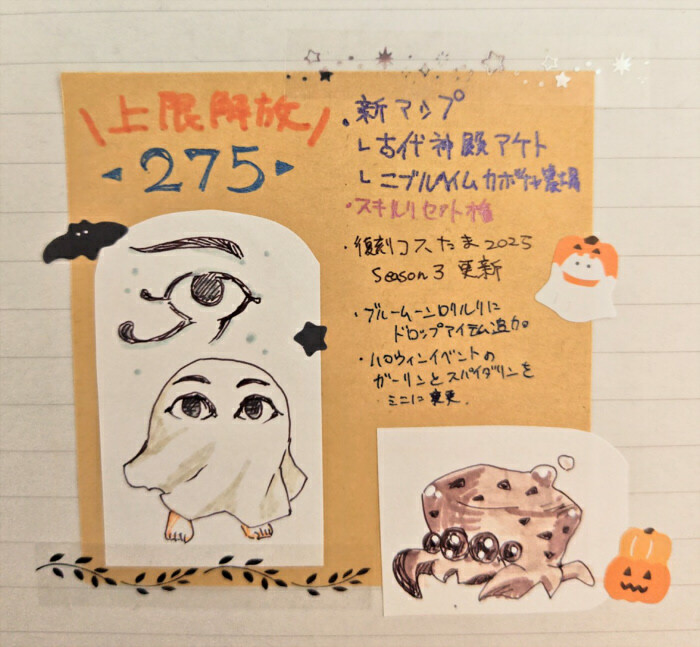 \上限解放/
275
・新マップ
└古代神殿アケト
└ニブルヘイムカボチャ墓場
・スキルリセット権
・復刻コスたま2025
Season3 更新
・ブルームーンロリルリに
ドロップアイテム追加
・ハロウィンイベントの
ガーリンとスパイダリンを
ミニに変更。